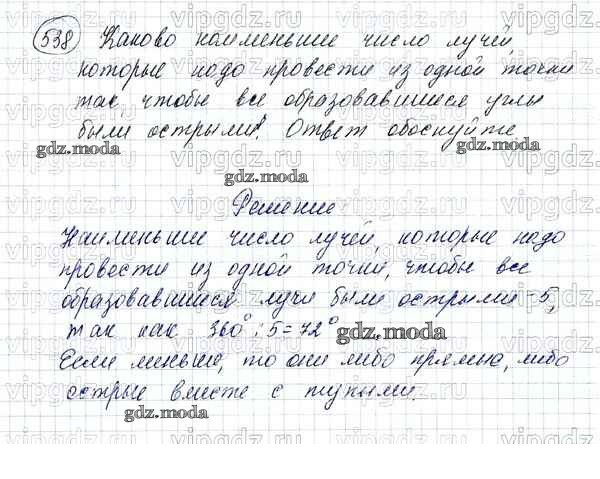 538 Каково наименьшее число лучей,
которые надо провести из одной точки
так, чтобы все образовавшиеся углы
были острыми? Ответ обоснуйте
gdz.moda
gdz.moda
gdz.moda
Решение
Наименьшее число лучей, которые надо
провести из одной точки, чтобы все
образовавшиеся лучи были острыми - 5,
так как 360° : 5 = 72°
gdz.moda
Если меньше, то они либо прямые, либо
острые вместе с тупыми.
gdz.moda
vipgdz.ru